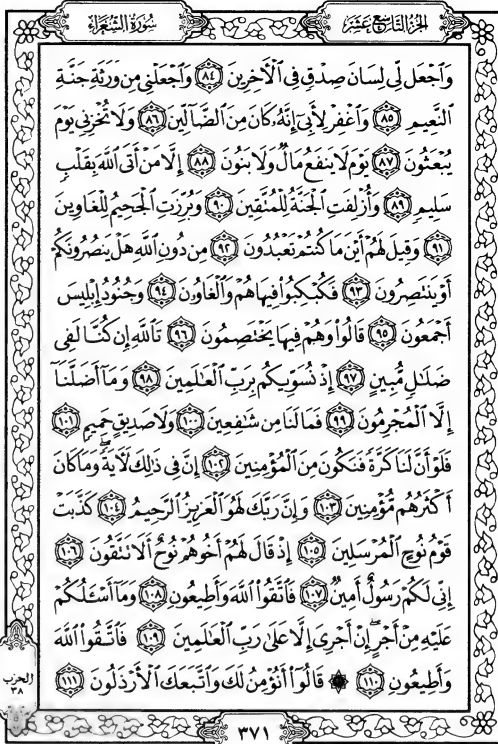 سُورَةُ الشُّعَرَاءِ
الجُزْءُ التَّاسِعَ عَشَرَ
وَٱجْعَل لِّى لِسَانَ صِدْقٍ فِى ٱلْأٓخِرِينَ ٨٤ وَٱجْعَلْنِى مِن وَرَثَةِ جَنَّةِ
ٱلنَّعِيمِ ٨٥ وَٱغْفِرْ لِأَبِىٓ إِنَّهُۥ كَانَ مِنَ ٱلضَّآلِّينَ ٨٦ وَلَا تُخْزِنِى يَوْمَ
يُبْعَثُونَ ٨٧ يَوْمَ لَا يَنفَعُ مَالٌ وَلَا بَنُونَ ٨٨ إِلَّا مَنْ أَتَى ٱللَّهَ بِقَلْبٍ
سَلِيمٍ ٨٩ وَأُزْلِفَتِ ٱلْجَنَّةُ لِلْمُتَّقِينَ ٩٠ وَبُرِّزَتِ ٱلْجَحِيمُ لِلْغَاوِينَ
٩١ وَقِيلَ لَهُمْ أَيْنَ مَا كُنتُمْ تَعْبُدُونَ ٩٢ مِن دُونِ ٱللَّهِ هَلْ يَنصُرُونَكُمْ
أَوْ يَنتَصِرُونَ ٩٣ فَكُبْكِبُوا۟ فِيهَا هُمْ وَٱلْغَاوُۥنَ ٩٤ وَجُنُودُ إِبْلِيسَ
أَجْمَعُونَ ٩٥ قَالُوا۟ وَهُمْ فِيهَا يَخْتَصِمُونَ ٩٦ تَٱللَّهِ إِن كُنَّا لَفِى
ضَلَٰلٍ مُّبِينٍ ٩٧ إِذْ نُسَوِّيكُم بِرَبِّ ٱلْعَٰلَمِينَ ٩٨ وَمَآ أَضَلَّنَآ
إِلَّا ٱلْمُجْرِمُونَ ٩٩ فَمَا لَنَا مِن شَٰفِعِينَ ١٠٠ وَلَا صَدِيقٍ حَمِيمٍ ١٠١
فَلَوْ أَنَّ لَنَا كَرَّةً فَنَكُونَ مِنَ ٱلْمُؤْمِنِينَ ١٠٢ إِنَّ فِى ذَٰلِكَ لَأٓيَةً ۖ وَمَا كَانَ
أَكْثَرُهُم مُّؤْمِنِينَ ١٠٣ وَإِنَّ رَبَّكَ لَهُوَ ٱلْعَزِيزُ ٱلرَّحِيمُ ١٠٤ كَذَّبَتْ
قَوْمُ نُوحٍ ٱلْمُرْسَلِينَ ١٠٥ إِذْ قَالَ لَهُمْ أَخُوهُمْ نُوحٌ أَلَا تَتَّقُونَ ١٠٦
إِنِّى لَكُمْ رَسُولٌ أَمِينٌ ١٠٧ فَٱتَّقُوا۟ ٱللَّهَ وَأَطِيعُونِ ١٠٨ وَمَآ أَسْـَٔلُكُمْ
عَلَيْهِ مِنْ أَجْرٍ ۖ إِنْ أَجْرِىَ إِلَّا عَلَىٰ رَبِّ ٱلْعَٰلَمِينَ ١٠٩ فَٱتَّقُوا۟ ٱللَّهَ
وَأَطِيعُونِ ١١٠ ۞ قَالُوٓا۟ أَنُؤْمِنُ لَكَ وَٱتَّبَعَكَ ٱلْأَرْذَلُونَ ١١١
الحزب
٣٨
٣٧١